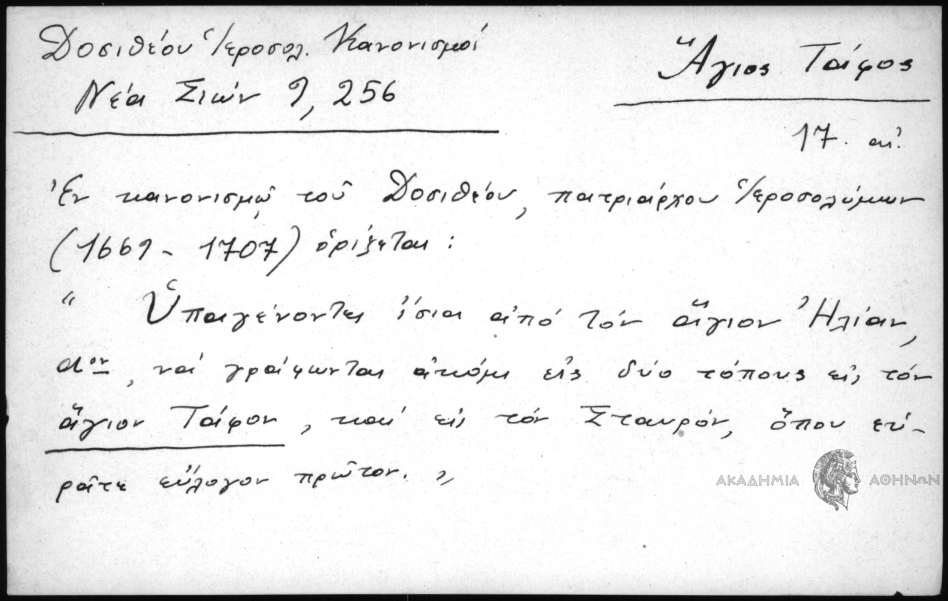 Δοσιθέου Ἱεροσολ. Κανονισμοί
Νέα Σιών 9, 256
Ἅγιος Τάφος
17. αἰ.
Ἐν κανονισμῷ τοῦ Δοσιθέου, πατριάρχου Ἱεροσολύμων
(1669 - 1707) ὁρίζεται :
" Ὑπαγένοντες ἴσια ἀπό τόν ἅγιον Ἠλίαν,
αον, νά γράψωνται ἀκόμι εἰς δύο τόπους εἰς τόν
ἅγιον Τάφον, καί εἰς τόν Σταυρόν, ὅπου εὑ-
ρᾶτε εὔλογον πρῶτον. "
ΑΚΑΔΗΜΙΑ ΑΘΗΝΩΝ